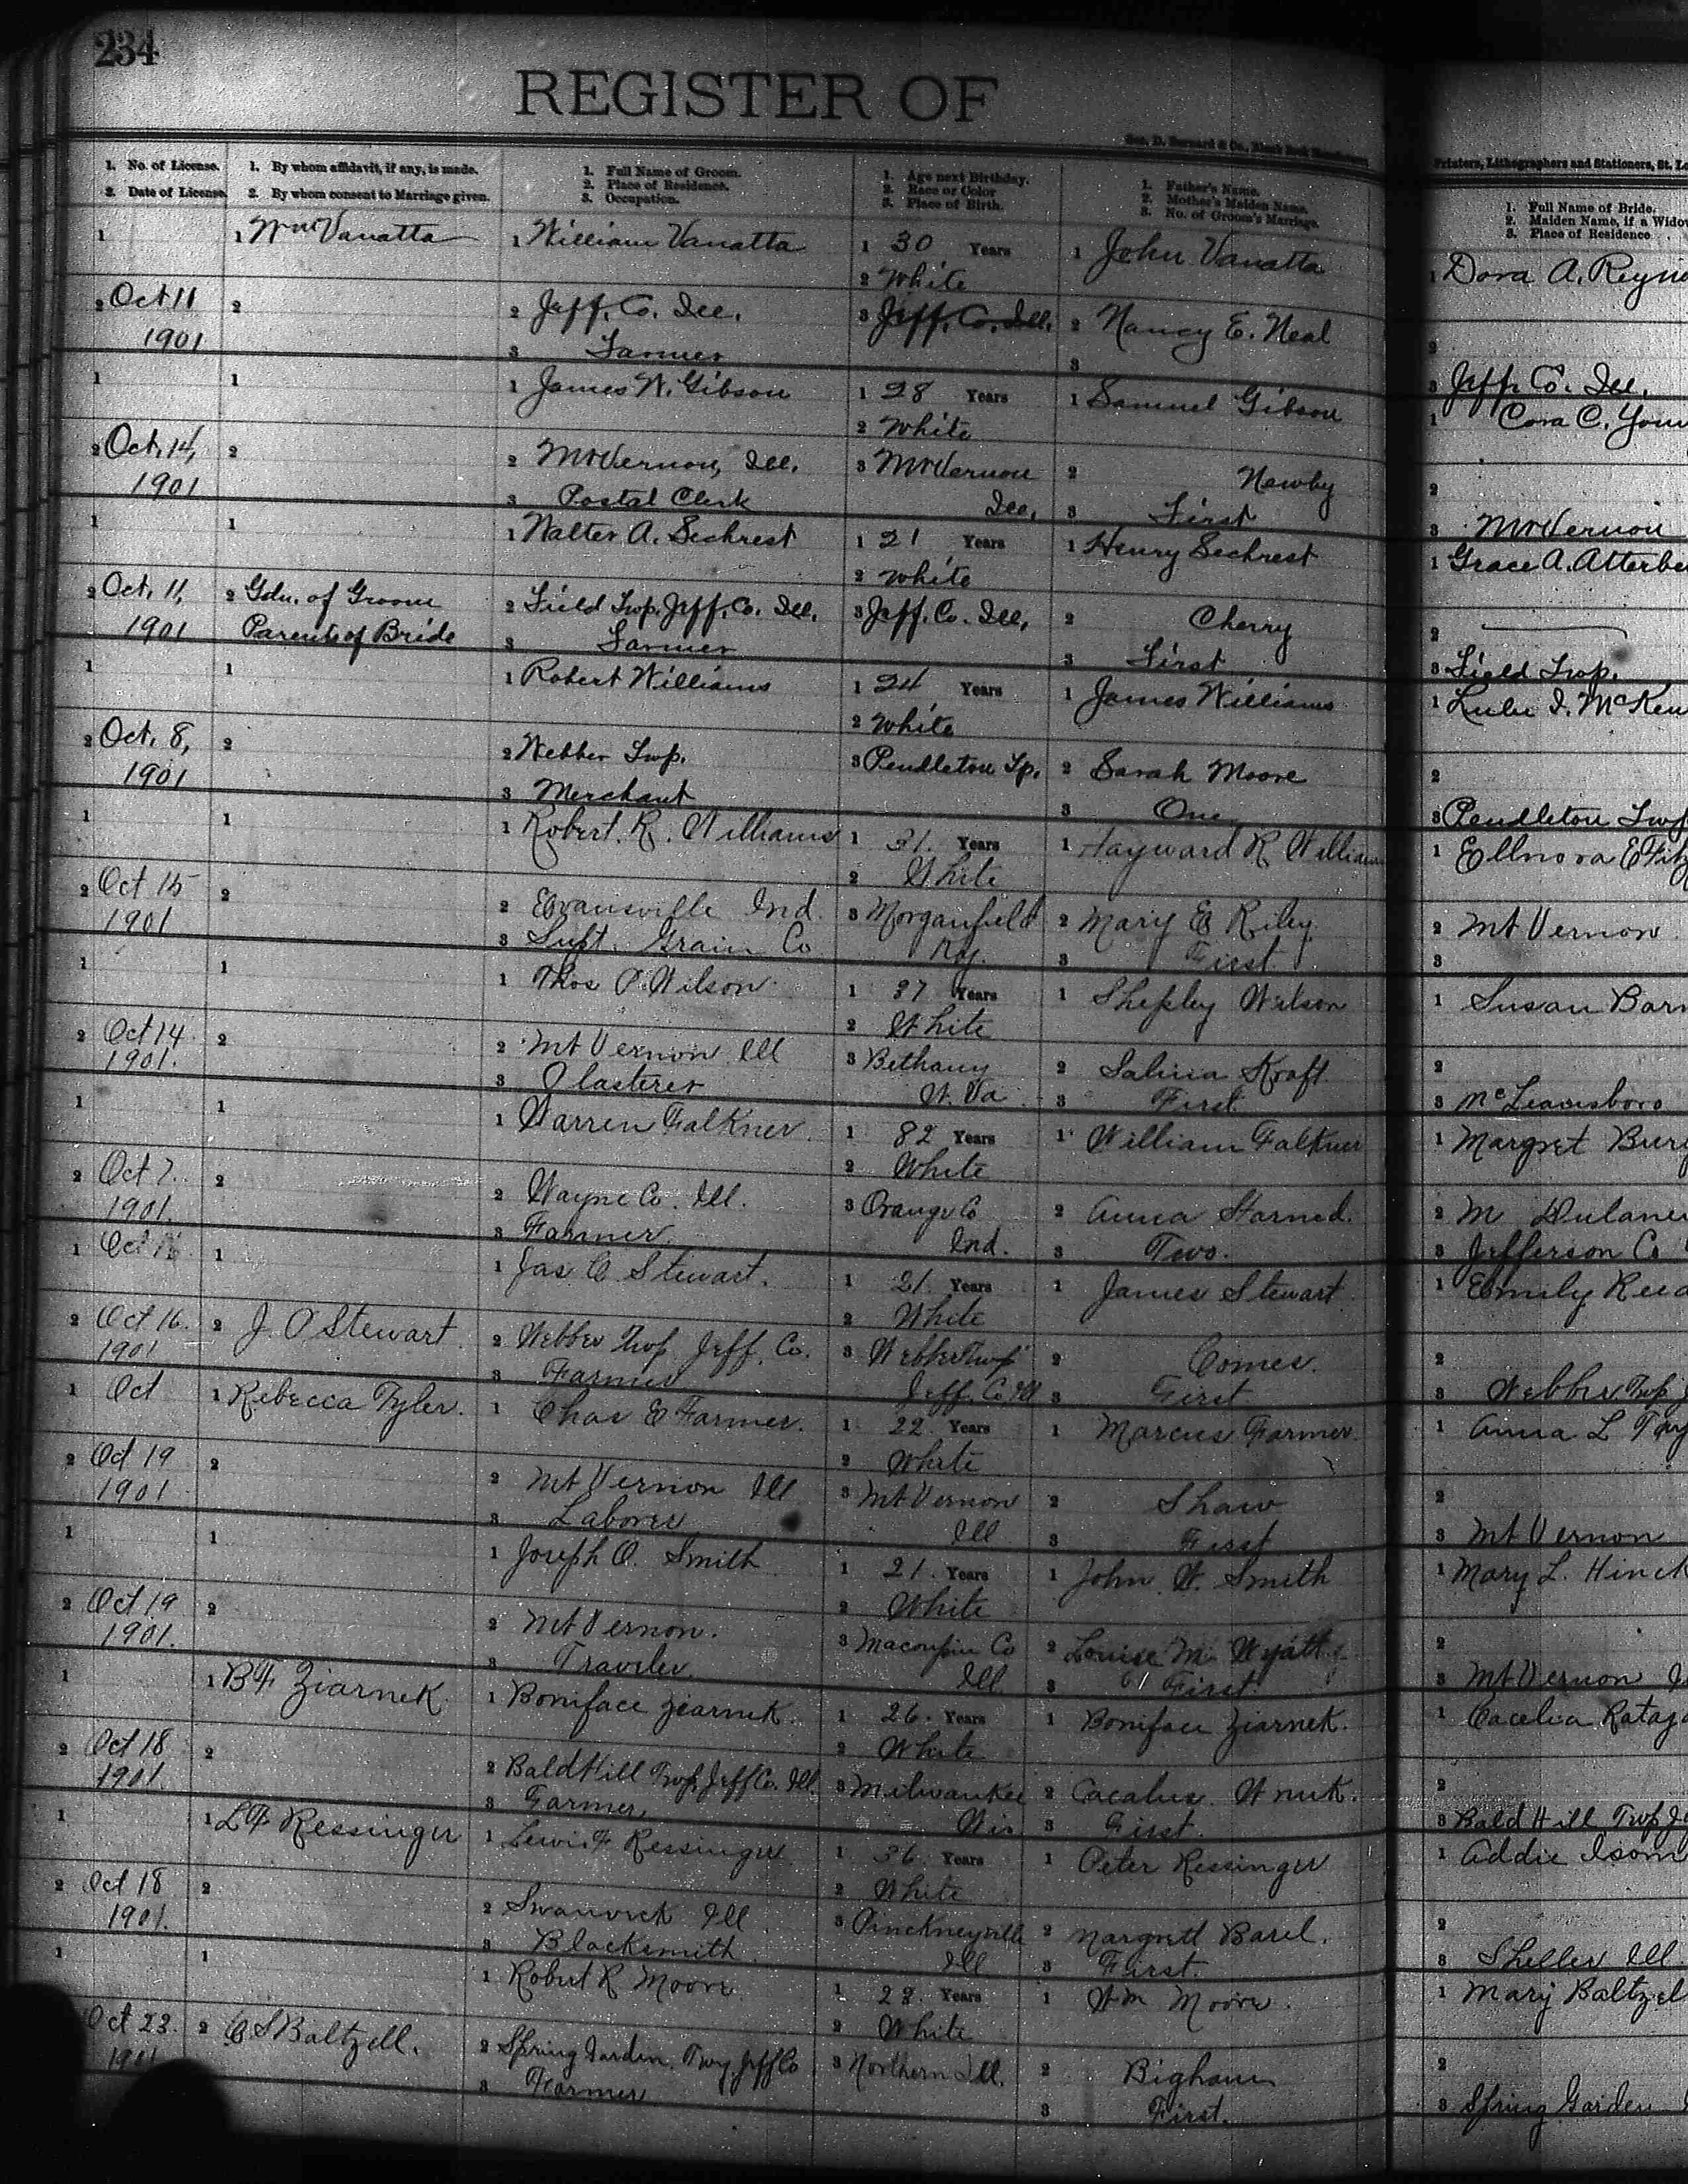 234
REGISTER OF
Geo. D. Barnard & Co., Blank Book
Printers, Lithographers and Stationers, St. Lo
1. No. of License.
2. Date of License.
1. By whom affidavit, if any, is made.
2. By whom consent to Marriage given.
1. Full Name of Groom.
2. Place of Residence.
3. Occupation.
1. Age next Birthday.
2. Race or Color
3. Place of Birth.
1. Father's Name.
2. Mother's Maiden Name.
3. No. of Groom's Marriage.
1. Full Name of Bride.
2. Maiden Name, if a Widow
3. Place of Residence.
1 1 Wm Vanatta 1 William Vanatta 1 30 Years 1 John Vanatta 1 Dora A. Reyno
2 White
2 Oct 11 2 2 Jeff. Co. Ill. 3 Jeff. Co. Ill. 2 Nancy E. Neal 2
1901 3 Farmer 3 3 Jeff. Co. Ill.
1 1 1 James W. Gibson 1 28 Years 1 Samuel Gibson 1 Cora C. You
2 White
2 Oct. 14, 2 2 Mt Vernon, Ill. 3 Mt Vernon 2 Newby 2
1901 3 Postal Clerk Ill. 3 First 3 Mt Vernon
1 1 1 Walter A. Sechrest 1 21 Years 1 Henry Sechrest 1 Grace A. Atterbe
2 White
2 Oct. 11, 2 Gdn. of Groom 2 Field Twp. Jeff. Co. Ill. 3 Jeff. Co. Ill. 2 Cherry 2
1901 Parents of Bride 3 Farmer 3 First 3 Field Twp.
1 1 1 Robert Williams 1 24 Years 1 James Williams 1 Lulu I. McKen
2 White
2 Oct. 8, 2 2 Webber Twp. 3 Pendleton Tp. 2 Sarah Moore 2
1901 3 Merchant 3 One 3 Pendleton Twp
1 1 1 Robert. R. Williams 1 31. Years 1 Hayward R William 1 Ellnora E Fitz
2 White
2 Oct 15 2 2 Evansville Ind. 3 Morganfield 2 Mary E Riley 2 Mt Vernon
1901 3 Supt. Grain Co Ky. 3 First 3
1 1 1 Thos P. Wilson 1 37 Years 1 Shepley Wilson 1 Susan Barn
2 White
2 Oct 14 2 2 Mt Vernon Ill 3 Bethany 2 Salina Kraft 2
1901. 3 Plasterer W. Va 3 First 3 McLeansboro
1 1 1 Warren Falkner 1 82 Years 1 William Falkner 1 Margret Burg
2 White
2 Oct 7. 2 2 Wayne Co. Ill. 3 Orange Co 2 Anna Starned. 2 M Dulane
1901. 3 Farmer. Ind. 3 Two. 3 Jefferson Co
1 Oct 16 1 1 Jas C Stewart. 1 21. Years 1 James Stewart 1 Emily Reed
2 White
2 Oct 16. 2 J. O Stewart 2 Webber Twp Jeff. Co. 3 Webber Twp 2 Comer. 2
1901 3 Farmer Jeff. Co Ill 3 First 3 Webber Twp
1 Oct 1 Rebecca Tyler. 1 Chas E Farmer. 1 22. Years 1 Marcus Farmer 1 Anna L
2 White
2 Oct 19 2 2 Mt Vernon Ill 3 Mt Vernon 2 Shaw 2
1901 3 Laborer Ill 3 First 3 Mt Vernon
1 1 1 Joseph O. Smith 1 21. Years 1 John W. Smith 1 Mary L. Hinck
2 White
2 Oct 19 2 2 Mt Vernon. 3 Macoupin Co 2 Louise M. Wyatt 2
1901. 3 Traveler Ill 3 First 3 Mt Vernon
1 1 B F Ziarnek 1 Boniface Ziarnek. 1 26. Years 1 Boniface Ziarnek. 1 Cacelia Rataj
2 White
2 Oct 18 2 2 Bald Hill Twp Jeff Co. Ill. 3 Milwaukee 2 Cacalus. Wnuk. 2
1901 3 Farmer Wis 3 First. 3 Bald Hill Twp
1 1 L F Ressinger 1 Lewis F Ressinger 1 36 Years 1 Peter Ressinger 1 Addie Isom
2 White
2 Oct 18 2 2 Swanwick Ill 3 Pinckneyville 2 Margrett Barel. 2
1901. 3 Blacksmith Ill 3 First. 3 Sheller Ill.
1 1 1 Robert R Moore 1 28. Years 1 Wm Moore. 1 Mary Baltzel
2 White
Oct 23. 2 C S Baltzell. 2 Spring Garden. Twp, Jeff Co 3 Northern Ill. 2 Bigham 2
1901 3 Farmer 3 First. 3 Spring Garden